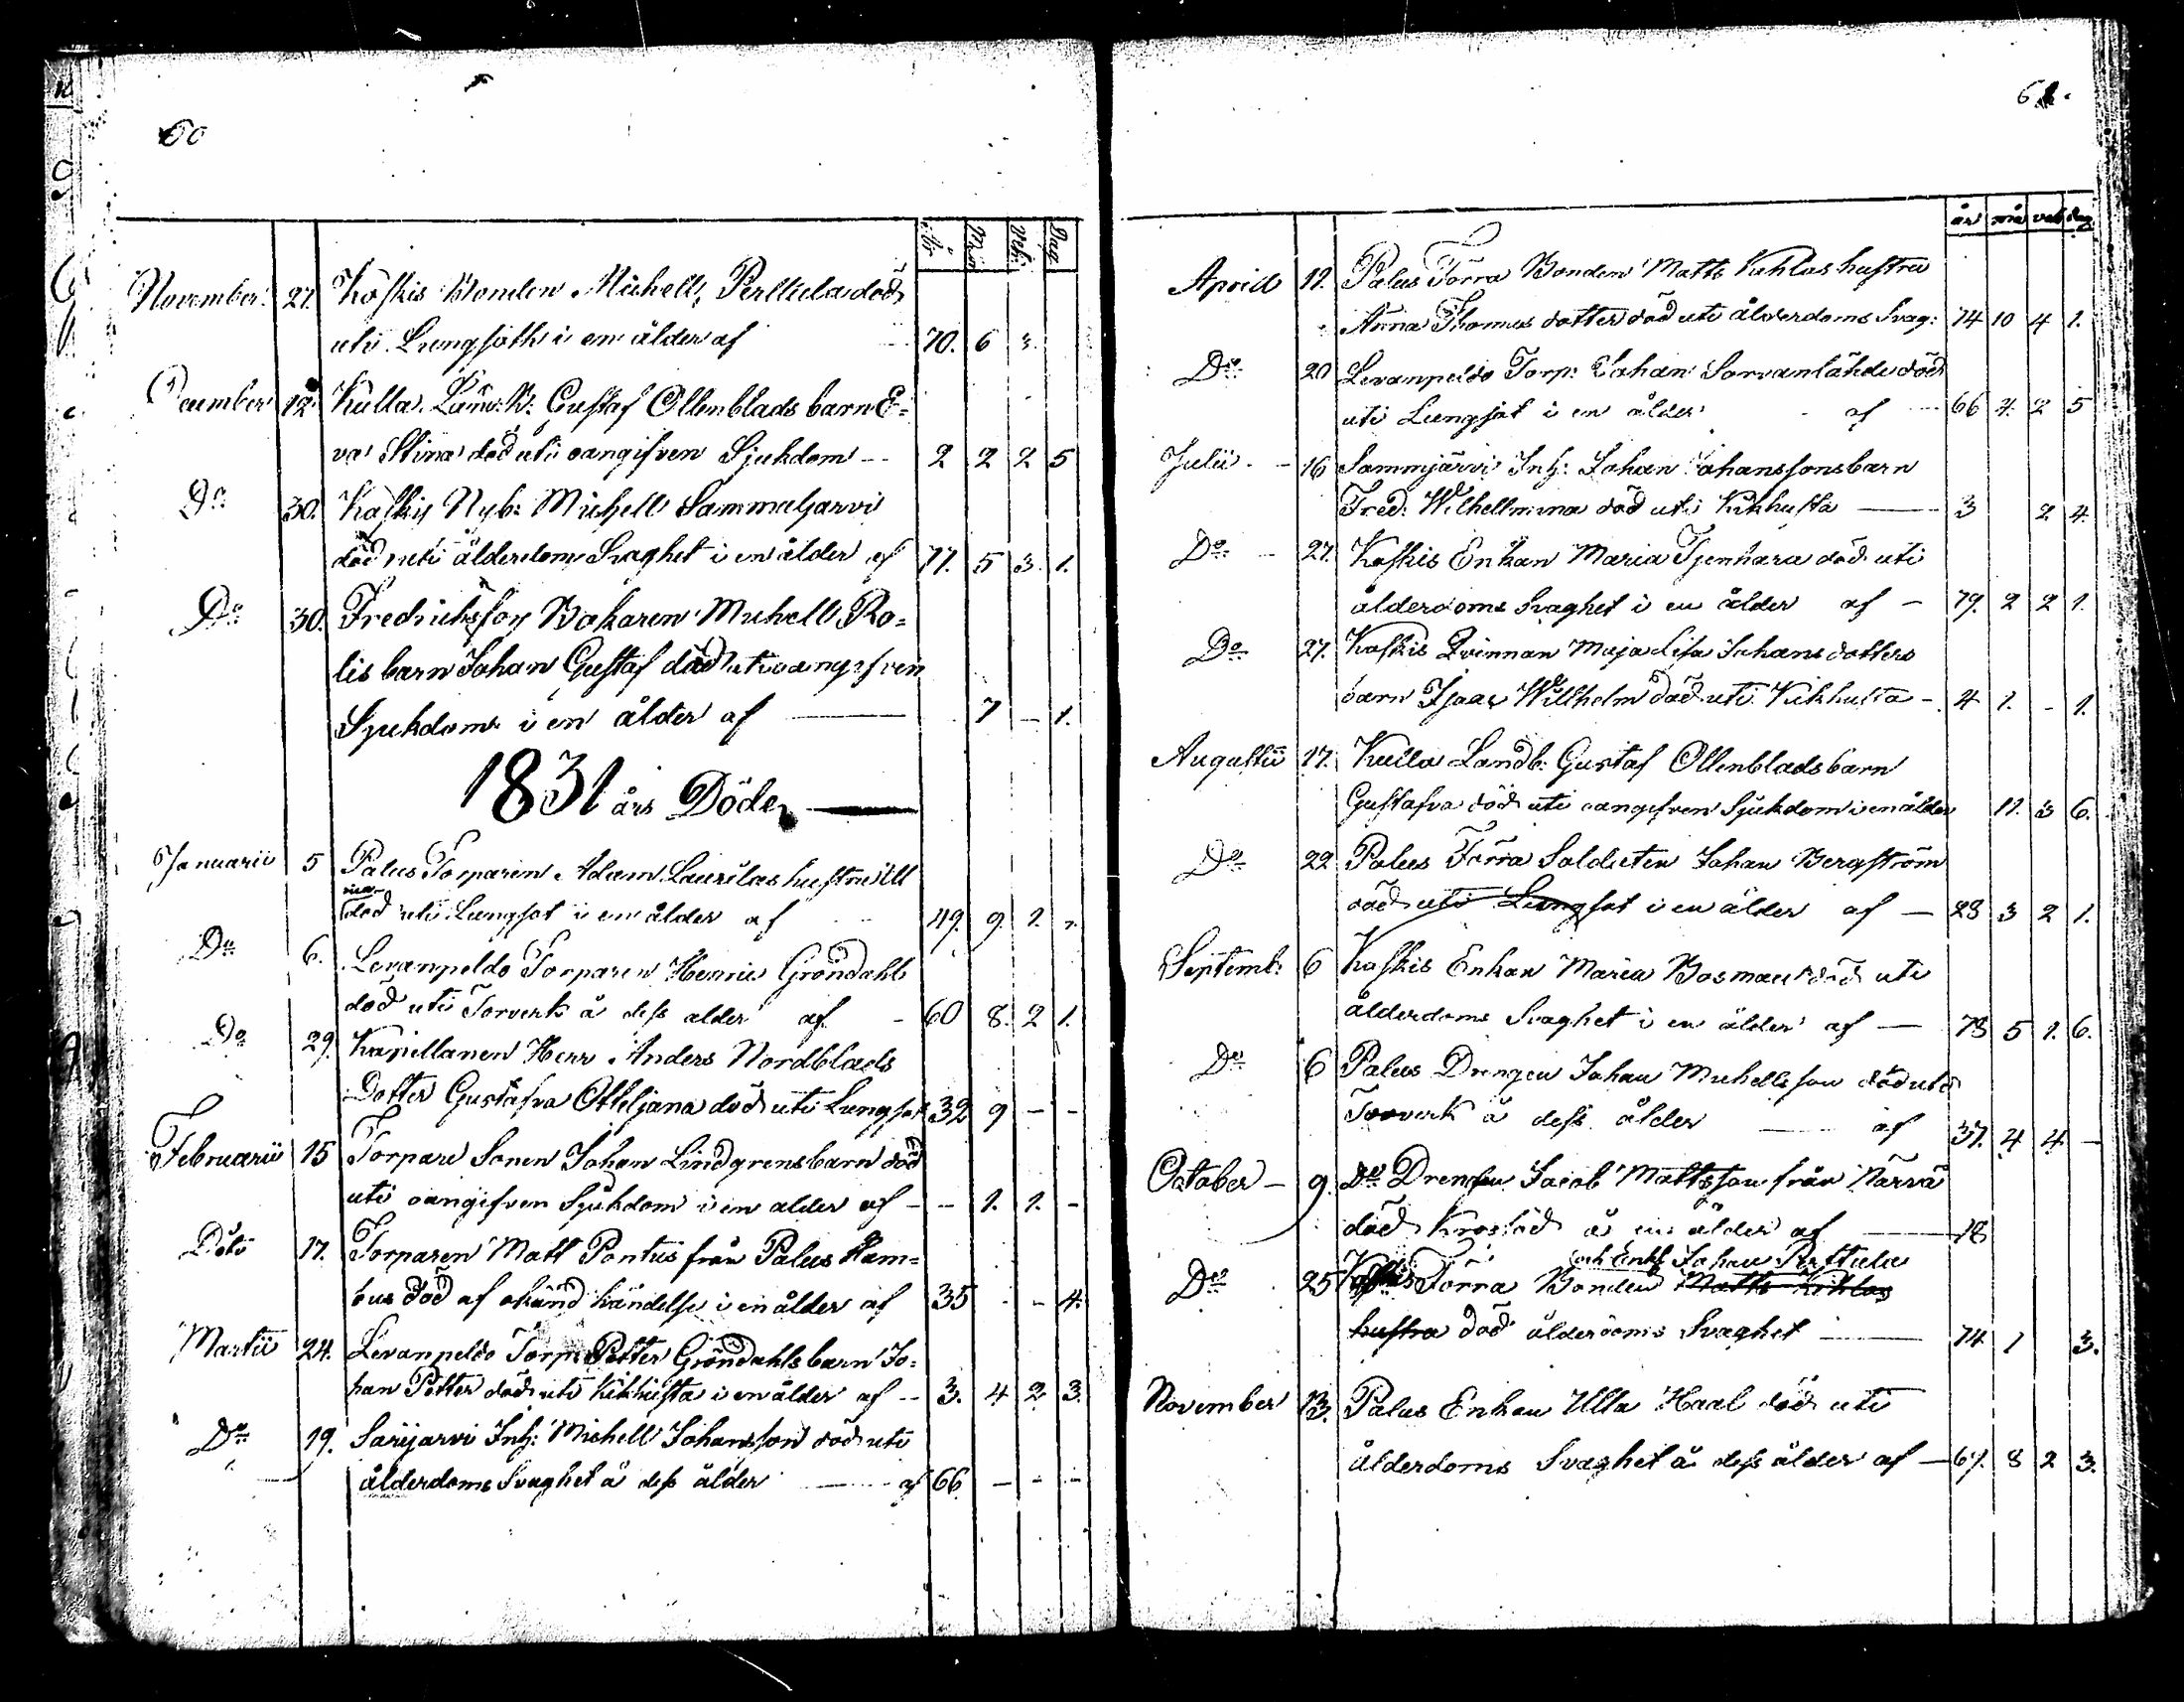 60
År Mån Vek: Dag
November 27. Koskis Bonden Michell Perttula död
uti Lungsoth i en ålder af 70. 6 3.
December 12. Kulla Landb: Gustaf Ollenblads barn E-
va Stina död uti oangifven Sjukdom -- 2 2 2 5
Do 30. Koskis Nyb: Michell Sammaljarvi
död uti ålderdoms Svaghet i en ålder af 77. 5 3. 1.
Do 30. Fredricksfors Bokaren Michell Ro-
lis barn Johan Gustaf död uti oangifven
Sjukdom i en ålder af — 7 – 1.
1831 års Döde —
Januarii 5 Palus Torparen Adam Laurilas hustru Ull
död uti Lungsot i en ålder af 49. 9. 1.
Do 6. Levanpeldo Torparen Henric Gröndahl
död uti Torverk å dess alder af - 60 8. 2 1.
Do 29. Kapellanen Herr Anders Nordblads
Dotter Gustafva Otteljana död uti Lungsot 32 9 – –
Februarii 15 Torpare Sonen Johan Lindgrens barn död
uti oangifven Sjukdom i en alder af – – 1. 1. –
Dito 17. Torparen Matt Pontus från Palus Ram-
bus död af okänd händelse i en ålder af 35 - - 4.
Martii 24. Levanpeldo Torp: Petter Gröndahls barn Jo-
han Petter död uti Kikhosta i en ålder af -- 3. 4 2 3.
Do 19. Sarijarvi Inh: Michell Johansson död uti
ålderdoms Svaghet å dess ålder — af 66 – - –
år må vek dag
April 12. Palus Torra Bonden Matts Kohlas hustru
Anna Thomas dotter död uti ålderdoms Svag: 74 10 4 1.
Do 20 Levanpeldo Torp: Johan Sorvanlähde död
uti Lungsot i en ålder af 66 4. 2 5
Julii - 16 Sammjärvi Inh: Johan Johanssons barn
Fred: Wilhellmina död uti Kikhosta — 3 2 4.
Do - 27. Koskis Enkan Maria Tjenhara död uti
ålderdoms Svaghet i en ålder af – 79. 2 2 1.
Do 27. Koskis Qvinnan Maja Lisa Johans dotters
barn Isaac Willhelm död uti Kikhosta – 4 1. - 1.
Augustii 17. Kulla Landb: Gustaf Ollenblads barn
Gustafva död uti oangifven Sjukdom i en ålder 11. 3 6.
Do 22 Palus Torra Soldaten Johan Bergström
död uti Lungsot i en ålder af — 28 3 2 1.
Septemb: 6 Koskis Enkan Maria Bosman död uti
ålderdoms Svaghet i en ålder af — 78 5 1. 6.
Do 6 Palus Drengen Johan Michellsson död uti
Torverk å dess ålder — af 37. 4 4 –
October – 9. Do Drengen Jacob Mattsson från Narra
död å en ålder af — 18
och Enkl: Johan Perttula
Do 25 Koskis Torra Bonden Matts Kohlas
hustru död ålderdoms Svaghet — 74 1 3.
November 13. Palus Enkan Ulla Haal död uti
ålderdoms Svaghet å dess ålder af – 67. 8 2 3.